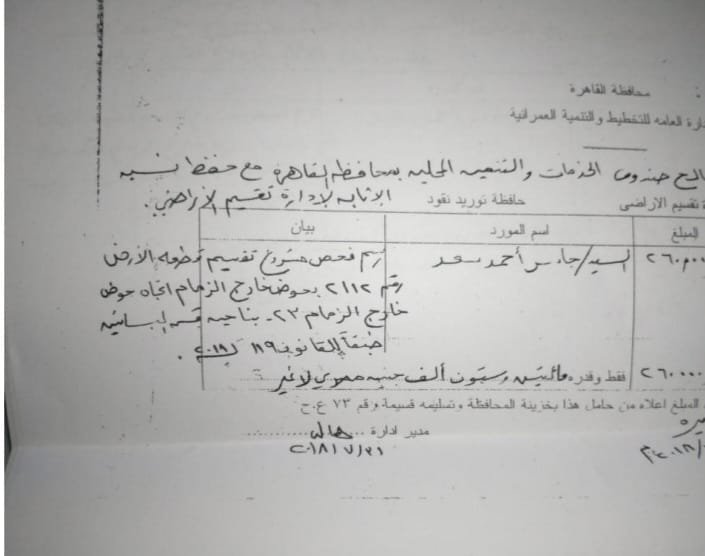 : محافظة القاهرة
دارة العامه للتخطيط والتنمية العمرانية
الح صندوق الخدمات والتنميه المحليه بمحافظه القاهره مع حفظ نسبه
ة تقسيم الاراضى حافظة توريد نقود الاثابه لإدارة تقسيم الاراضي.
المبلغ اسم المورد بيان
٢٦٠٠٠٠ السيد/ أحمد سعد رسم فحص مشروع تقسيم قطعه الأرض
رقم ٢١١٢ بحوض خارج الزمام اتجاه حوض
خارج الزمام ٢٣- بناحيه قسم البساتين
طبقاً للقانون ١١٩ لـ ٢٠٠٨.
٢٦٠٠٠٠ فقط وقدره مائتين وستون ألف جنيه مصري لا غير
المبلغ اعلاه من حامل هذا بخزينة المحافظة وتسليمه قسيمة رقم ٧٣ ع.ح
مدير ادارة هاله
٢٠١٨/٧/٣١